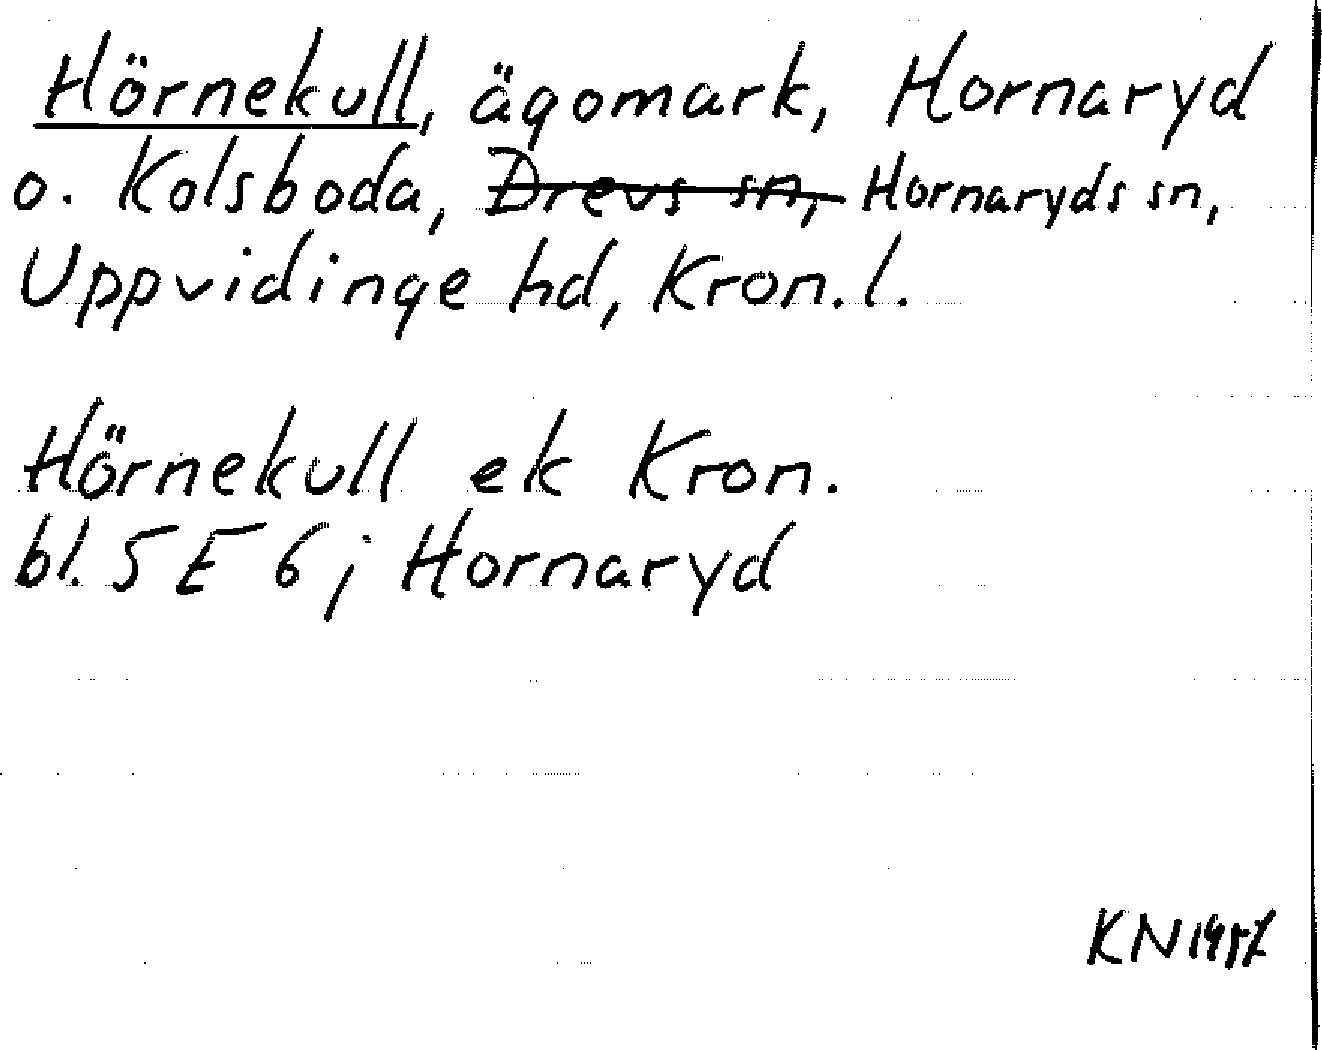 Hörnekull, ägomark, Hornaryd
o. Kolsboda, Drevs sn, Hornaryds sn,
Uppvidinge hd, Kron. l.
Hörnekull ek Kron.
bl. 5 E 6; Hornaryd
KN 1957